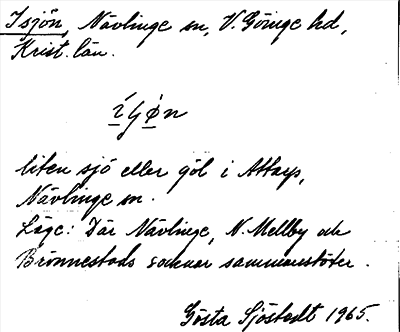 Isjön, Nävlinge sn, V. Göinge hd,
Krist. län.
liten sjö eller göl i Attarp,
Nävlinge sn.
Läge: Där Nävlinge, N. Mellby och
Brönnestads socknar sammanstöter.
Gösta Sjöstedt 1965.